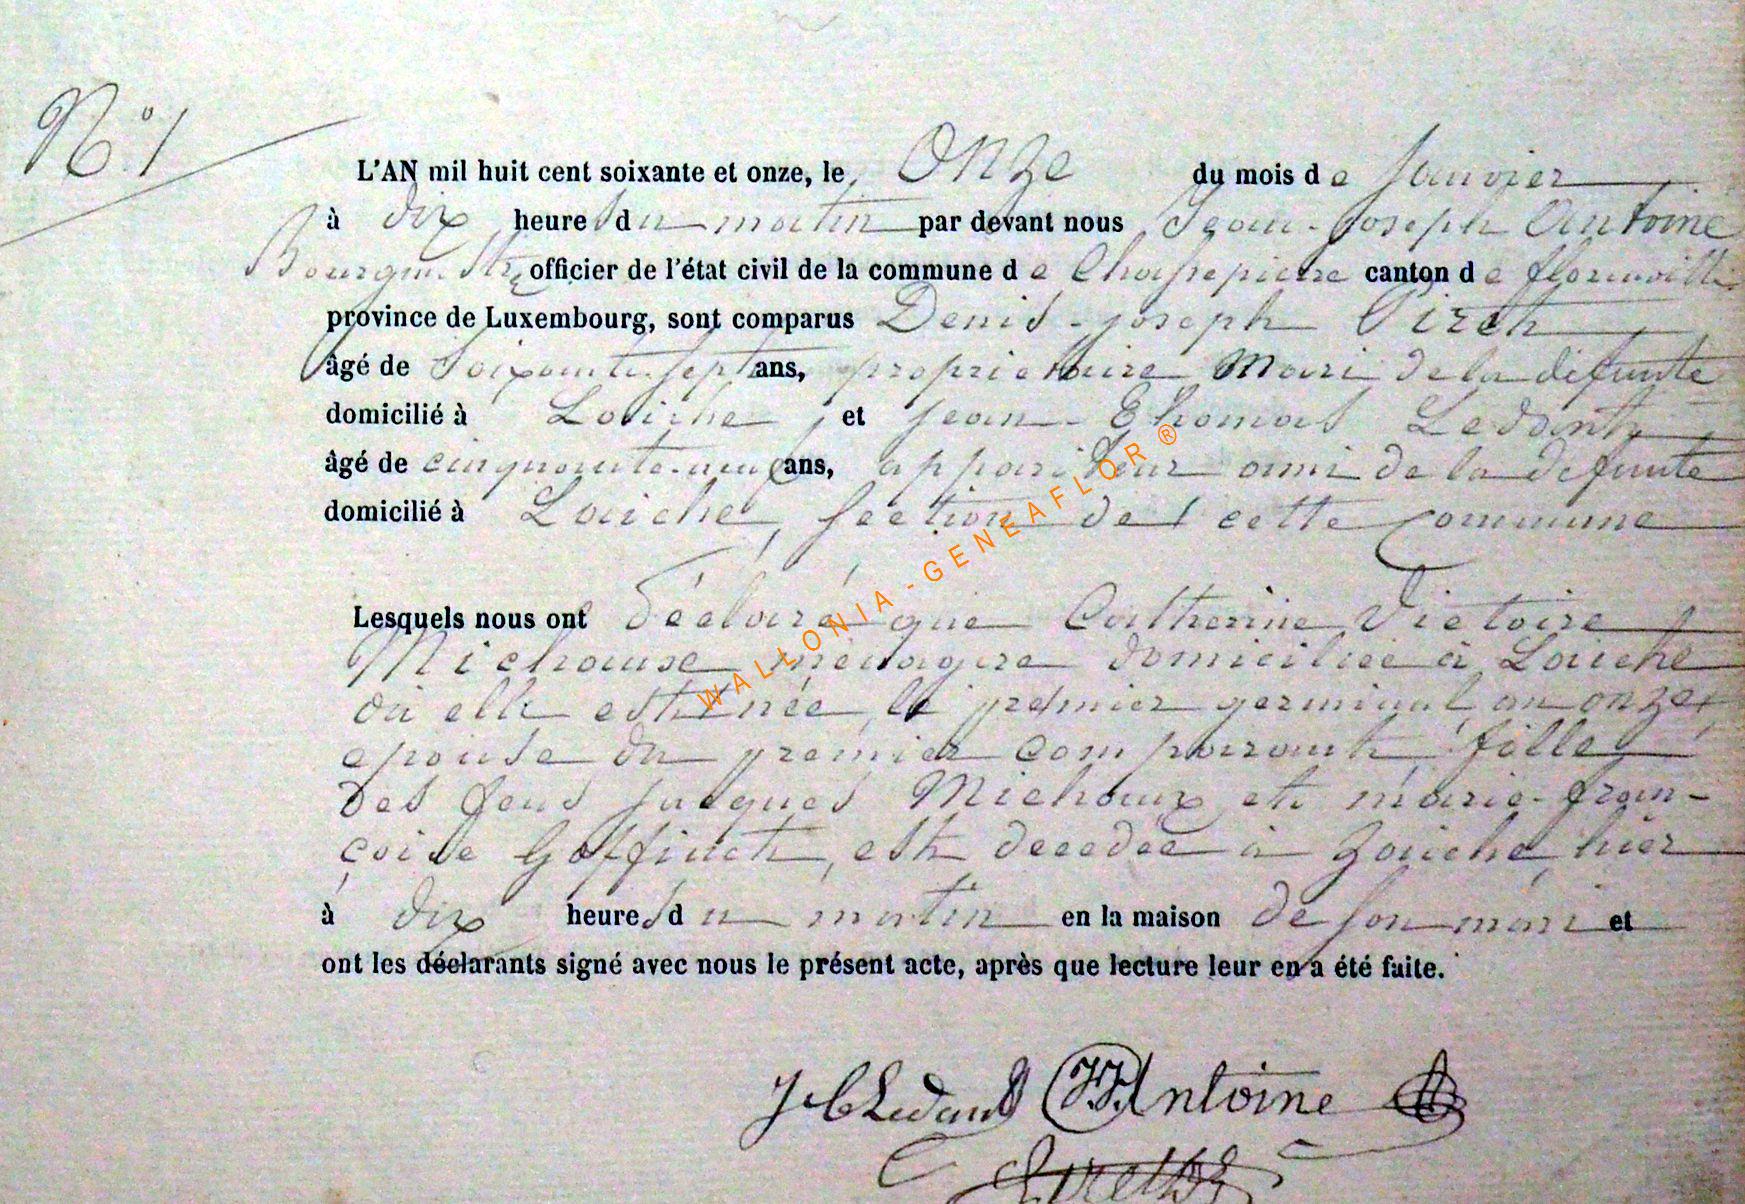 N.° 1
L'AN mil huit cent soixante et onze, le Onze du mois de Janvier
à dix heures du matin par devant nous Jean-Joseph Antoine
Bourgmestre officier de l'état civil de la commune de Chassepierre canton de florenville
province de Luxembourg, sont comparus Denis-joseph Pireth
âgé de Soixante-sept ans, propriétaire Mari de la défunte
domicilié à Laiche, et jean-Thomas Ledant
âgé de cinquante-neuf ans, appariteur ami de la défunte
domicilié à Laiche, section de cette commune
Lesquels nous ont déclaré que Catherine Victoire
Michause menagère domiciliée à Laiche
où elle est née, le premier germinal an onze,
epouse du premier comparant, fille
des feus jacques Michaux et marie-fran-
çoise Goffinet, est decedée à Laiche, hier
à dix heures du matin en la maison de son mari et
ont les déclarants signé avec nous le présent acte, après que lecture leur en a été faite.
Ledant J.J. Antoine
WALLONIA-GENEAFLOR ®